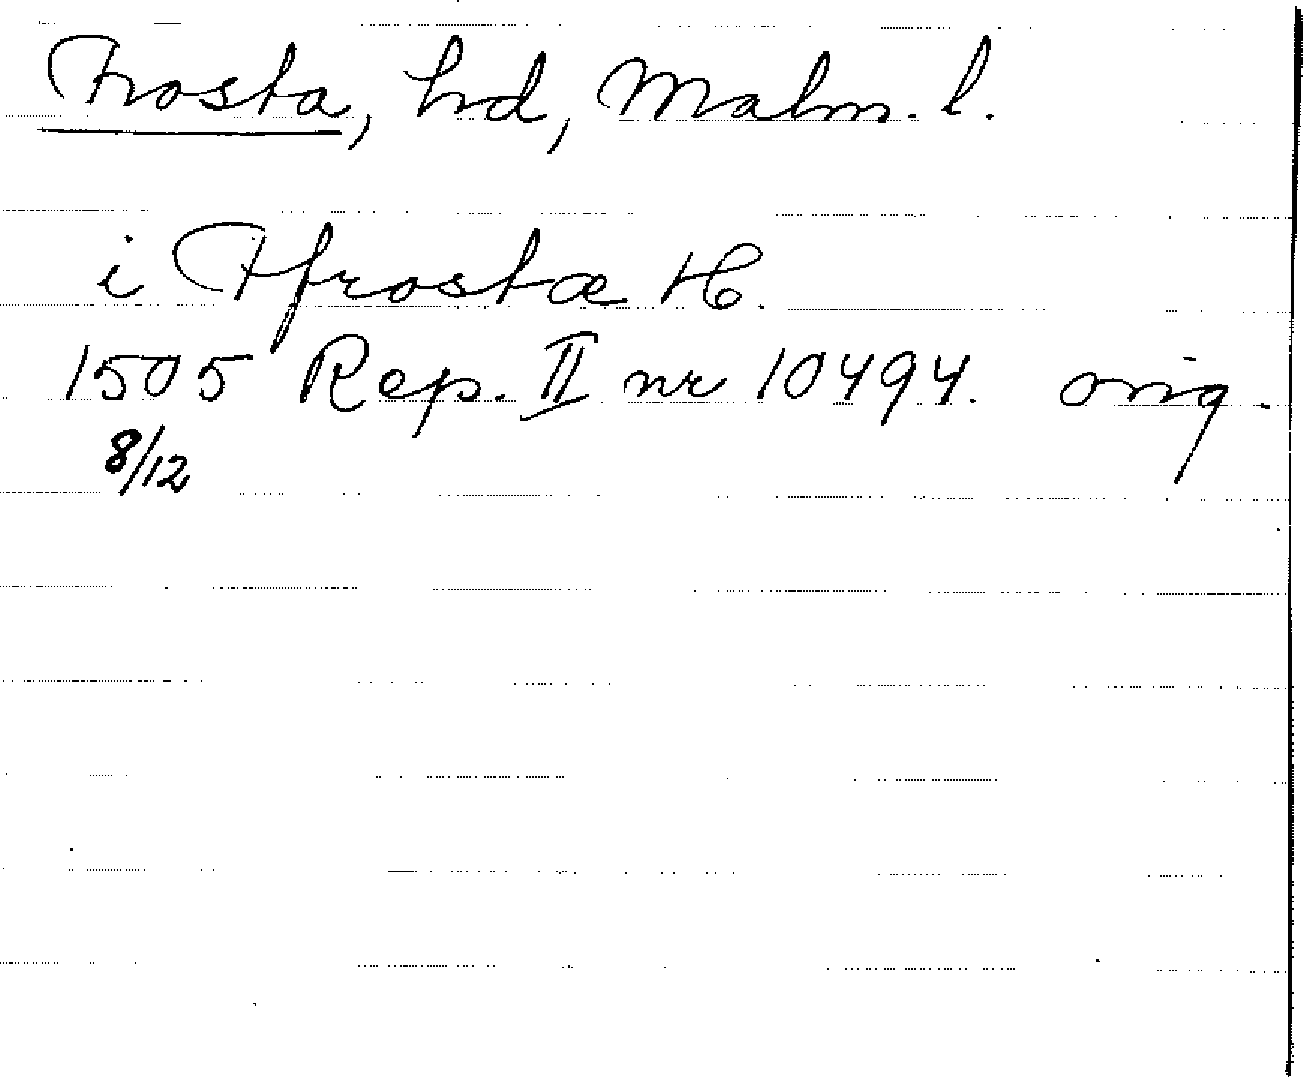 Frosta, hd, Malm. l.
i Ffrostæ H.
1505 Rep. II nr 10494. orig.
8/12